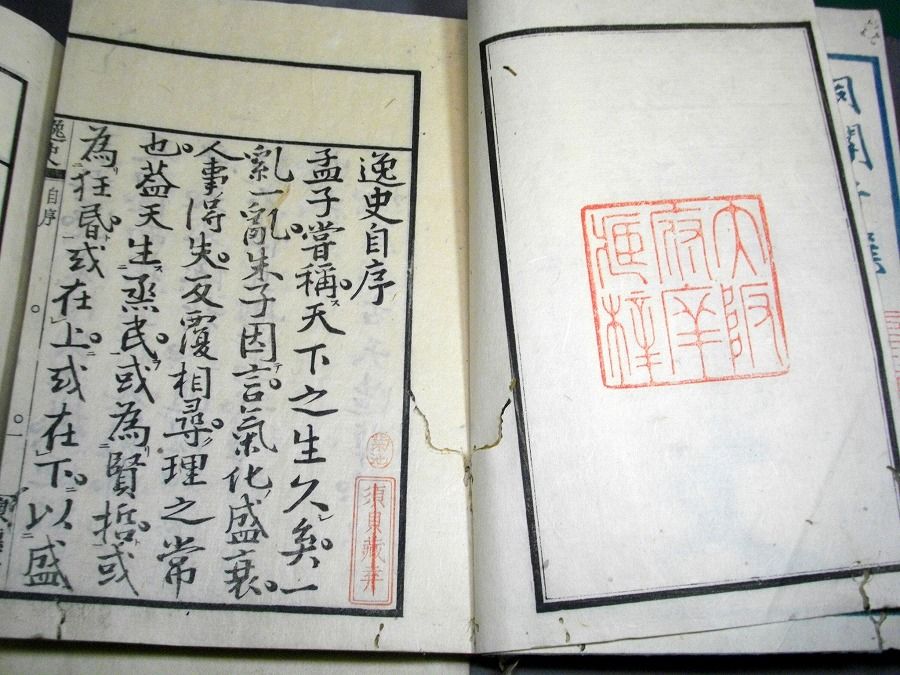 大阪
府
梓
逸史自序
孟子嘗稱天下之生久矣一
一亂朱子因言氣化盛衰
人事得失反覆相尋理之常
也蓋天生烝民或為賢哲或
為狂昬或在上或在下以盛
菊池
須貝藏
逸史 自序 一